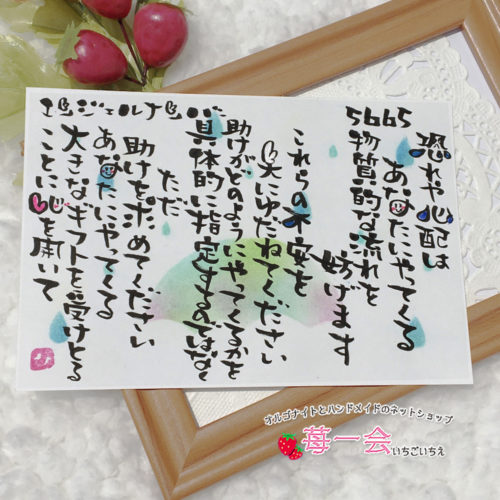 エンジェルナンバー
5665
恐れや心配は
あなたにやってくる
物質的な流れを
妨げます
これらの不安を
天にゆだねてください
助けがどのようにやってくるかを
具体的に指定するのではなく
ただ
助けを求めてください
あなたにやってくる
大きなギフトを受けとる
ことに心を開いて
オルゴナイトとハンドメイドのネットショップ
苺一会いちごいちえ